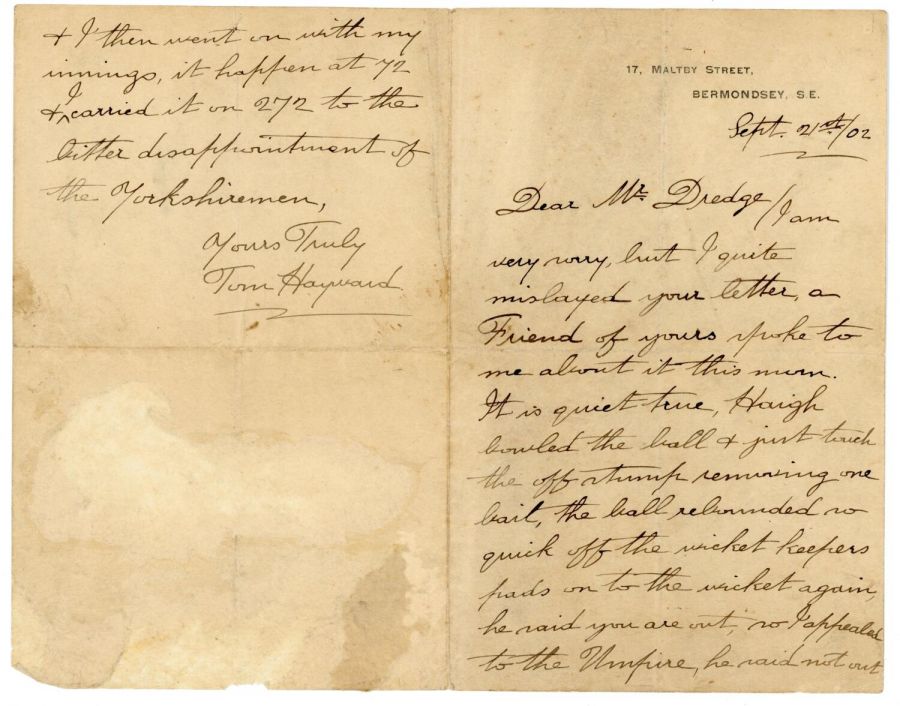 17, MALTBY STREET,
BERMONDSEY, S.E.
Sept. 21st/02
Dear Mr. Dredge/I am
very sorry, but I quite
mislayed your letter, a
Friend of yours spoke to
me about it this morn.
It is quiet true, Haigh
bowled the ball & just touch
the off stump removing one
bail, the ball rebounded so
quick off the wicket keepers
pads on to the wicket again,
he said you are out, so I appealed
to the Umpire, he said not out
& I then went on with my
innings, it happen at 72
& I carried it on 272 to the
bitter disappointment of
the Yorkshiremen,
Yours Truly
Tom Hayward